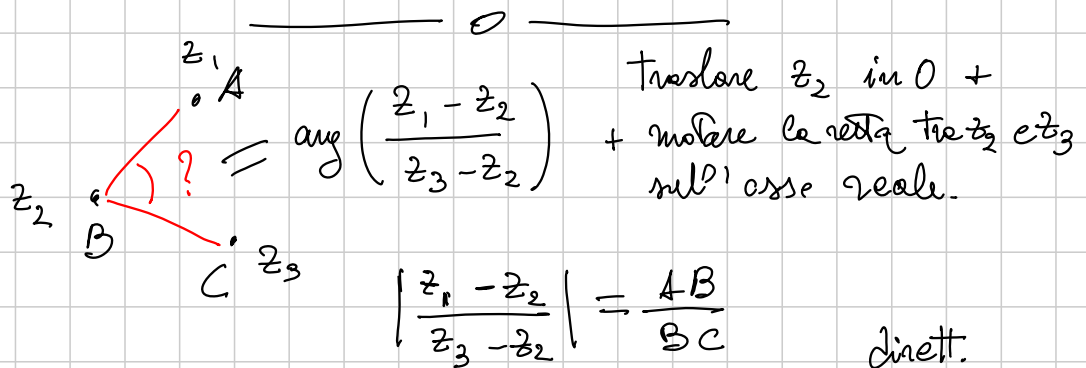 z₁ A
? = arg((z₁ - z₂)/(z₃ - z₂))
traslare z₂ in 0 +
+ ruotare la retta tra z₂ e z₃
sull'asse reale.
z₂ B
C z₃
|(z₁ - z₂)/(z₃ - z₂)| = AB/BC
dirett.